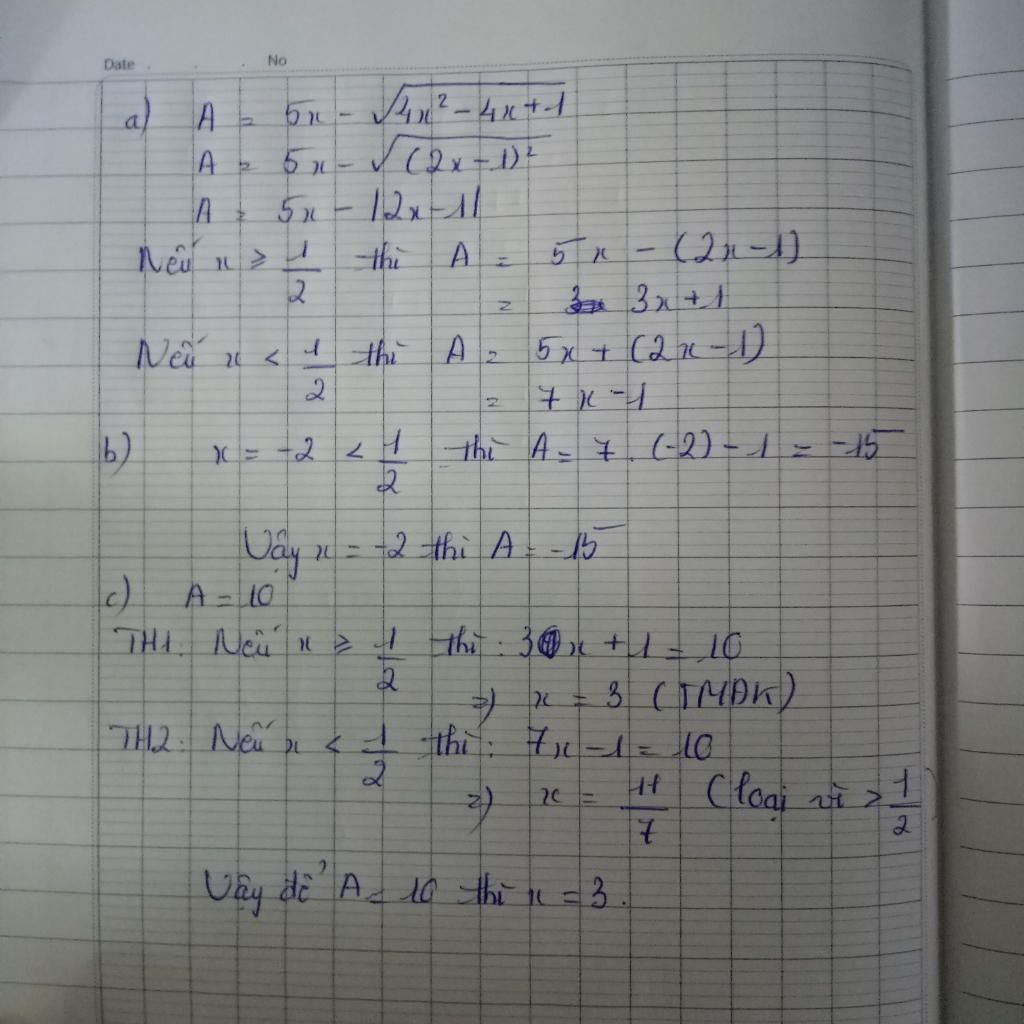 Date . . . No
a) A = 5x - √(4x² - 4x + 1)
A = 5x - √((2x - 1)²)
A = 5x - |2x - 1|
Nếu x ≥ 1/2 thì A = 5x - (2x - 1)
= 3x + 1
Nếu x < 1/2 thì A = 5x + (2x - 1)
= 7x - 1
b) x = -2 < 1/2 thì A = 7 . (-2) - 1 = -15
Vậy x = -2 thì A = -15
c) A = 10
TH1: Nếu x ≥ 1/2 thì : 3x + 1 = 10
=) x = 3 (TMĐK)
TH2: Nếu x < 1/2 thì : 7x - 1 = 10
=) x = 11/7 (loại vì > 1/2)
Vậy để A = 10 thì x = 3.